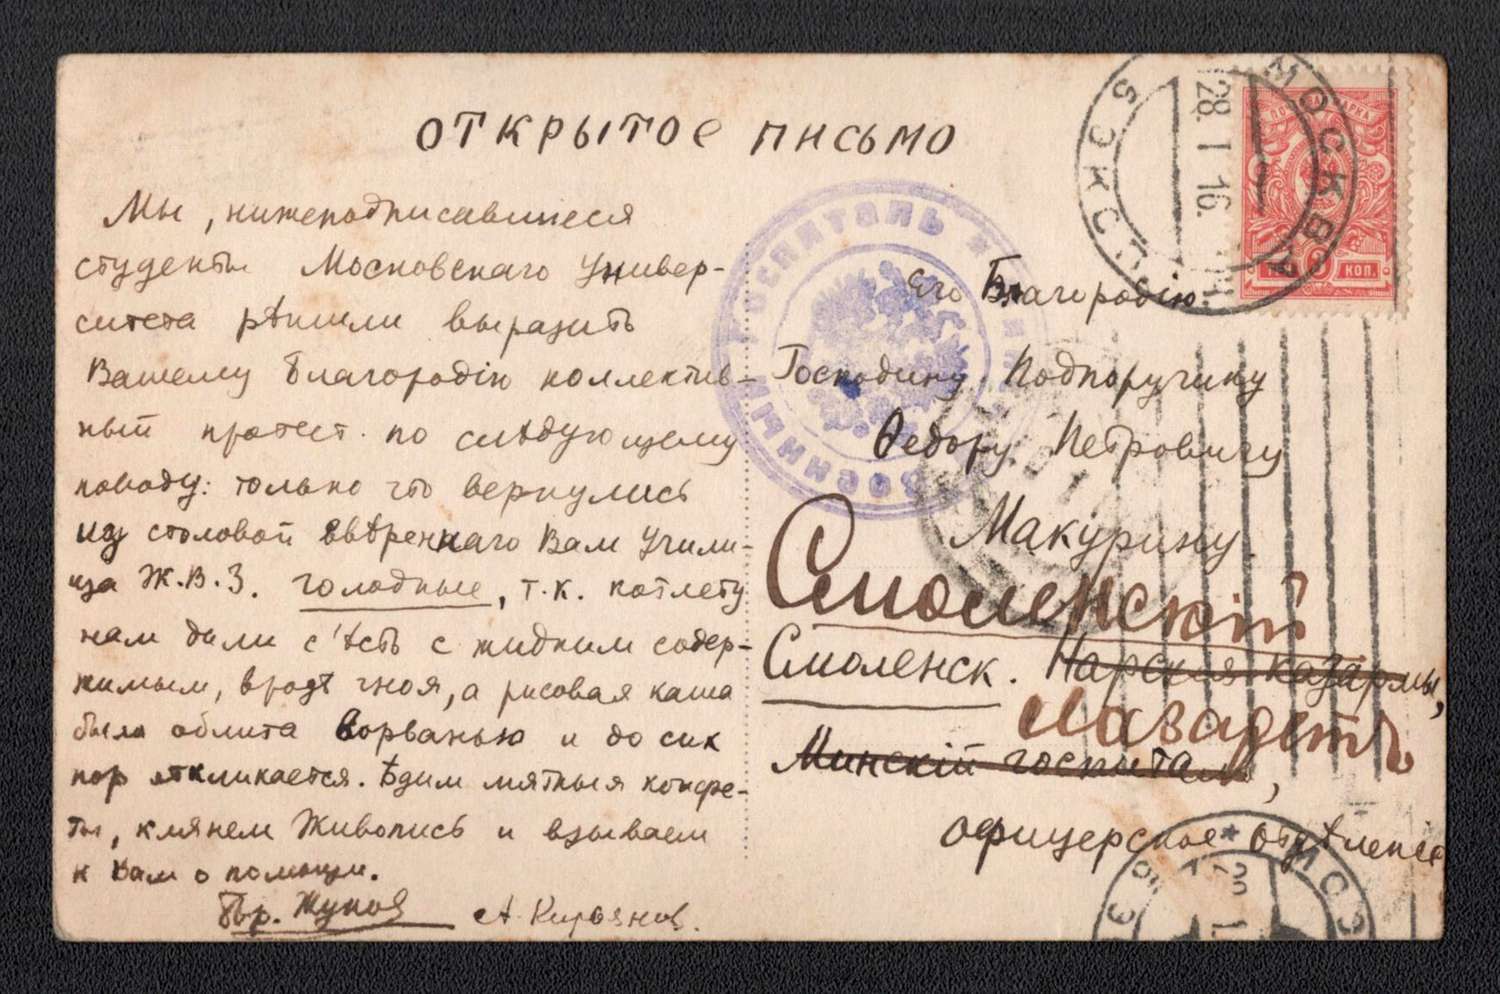 ОТКРЫТОЕ ПИСЬМО
Мы, нижеподписавшиеся
студенты Московскаго Универ-
ситета рѣшили выразить
Вашему Благородію коллектив-
ный протест по слѣдующему
поводу: только что вернулись
из столовой ввѣреннаго Вам Учили-
ща Ж.В.З. голодные, т.к. котлету
нам дали с'ѣсть с жидким содер-
жимым, вродѣ гноя, а рисовая каша
была облита ворванью и до сих
пор откликается. Ѣдим мятныя конфе-
ты, клянем Живопись и взываем
к Вам о помощи.
А. Кирьянов.
Его Благородію
Господину Подпоручику
Ѳедору Петровичу
Макурину.
Смоленскій
Смоленск. казармы,
Лазаретъ
Минскій госпиталь,
офицерское отдѣленіе
МОСКВА
28. 1 16.
ВОЕННЫЙ ГОСПИТАЛЬ
КОП.